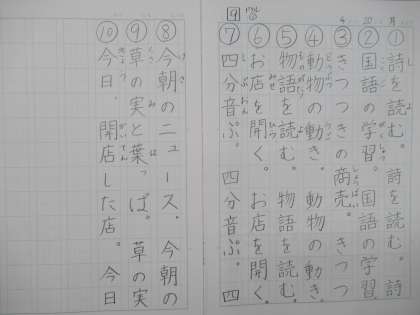 ４ 20 月
①詩を読む。詩を読む。詩
②国語の学習。国語の学習
③きつつきの商売。きつつ
④動物の動き。動物の動き
⑤物語を読む。物語を読む。
⑥お店を開く。お店を開く。
⑦四分音ぷ。四分音ぷ。四
⑧今朝のニュース。今朝の
⑨草の実と葉っぱ。草の実
⑩今日、開店した店。今日